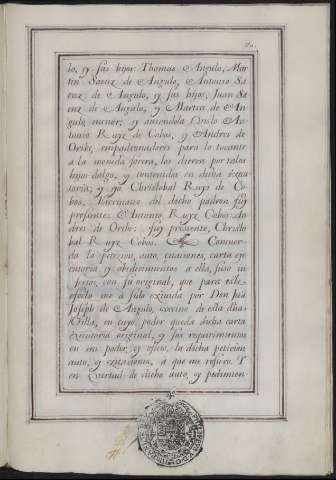 lo, y sus hijos: Thomas Angulo, Mar
tin Saenz de Angulo, Antonio Sa
enz de Angulo, y sus hijos, Juan Sa
enz de Angulo, y Martin de An
gulo menor; y aviendola visto An
tonio Ruyz de Cobos, y Andres de
Oribe, empadronadores para lo tocante
a la moneda forera, los dieron por tales
hijos dalgo, y contenidos en dicha execu
toria; y yo Christobal Ruyz de Co
bos, Escrivano del dicho padron fuy
presente: Antonio Ruyz Cobos: An
dres de Oribe: fuy presente, Christo
bal Ruyz Cobos. Concuer
da la peticion, auto, citaciones, carta eje
cutoria y obedecimientos a ella, suso in
sertos, con su original, que para este
efecto me à sido exivida por Don
Joseph de Angulo, vecino de esta dha
Villa, en cuyo poder queda dicha carta
executoria original, y sus requerimientos
en mi poder, y oficio, la dicha peticion
auto, y citaciones, a que me refiero. Y
en virtud de dicho auto, y pedimien